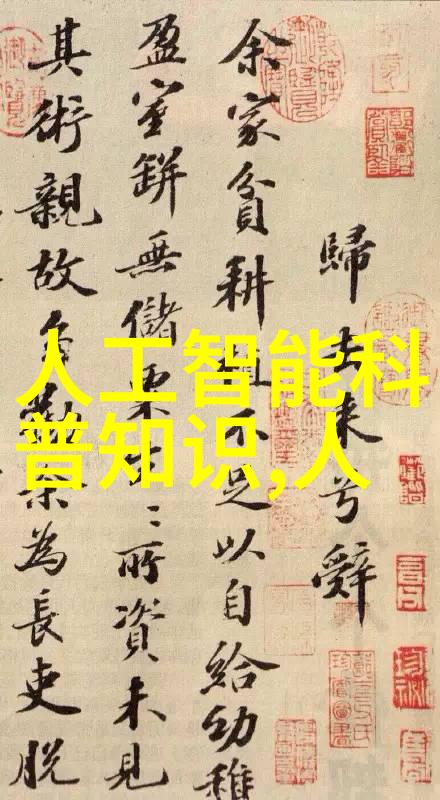 人工智能科
普知识,人
歸去来兮辭
余家貧耕植不足以自給幼稚
盈室缾無儲粟生〻所資未見
其術親故多勸余為長吏脫